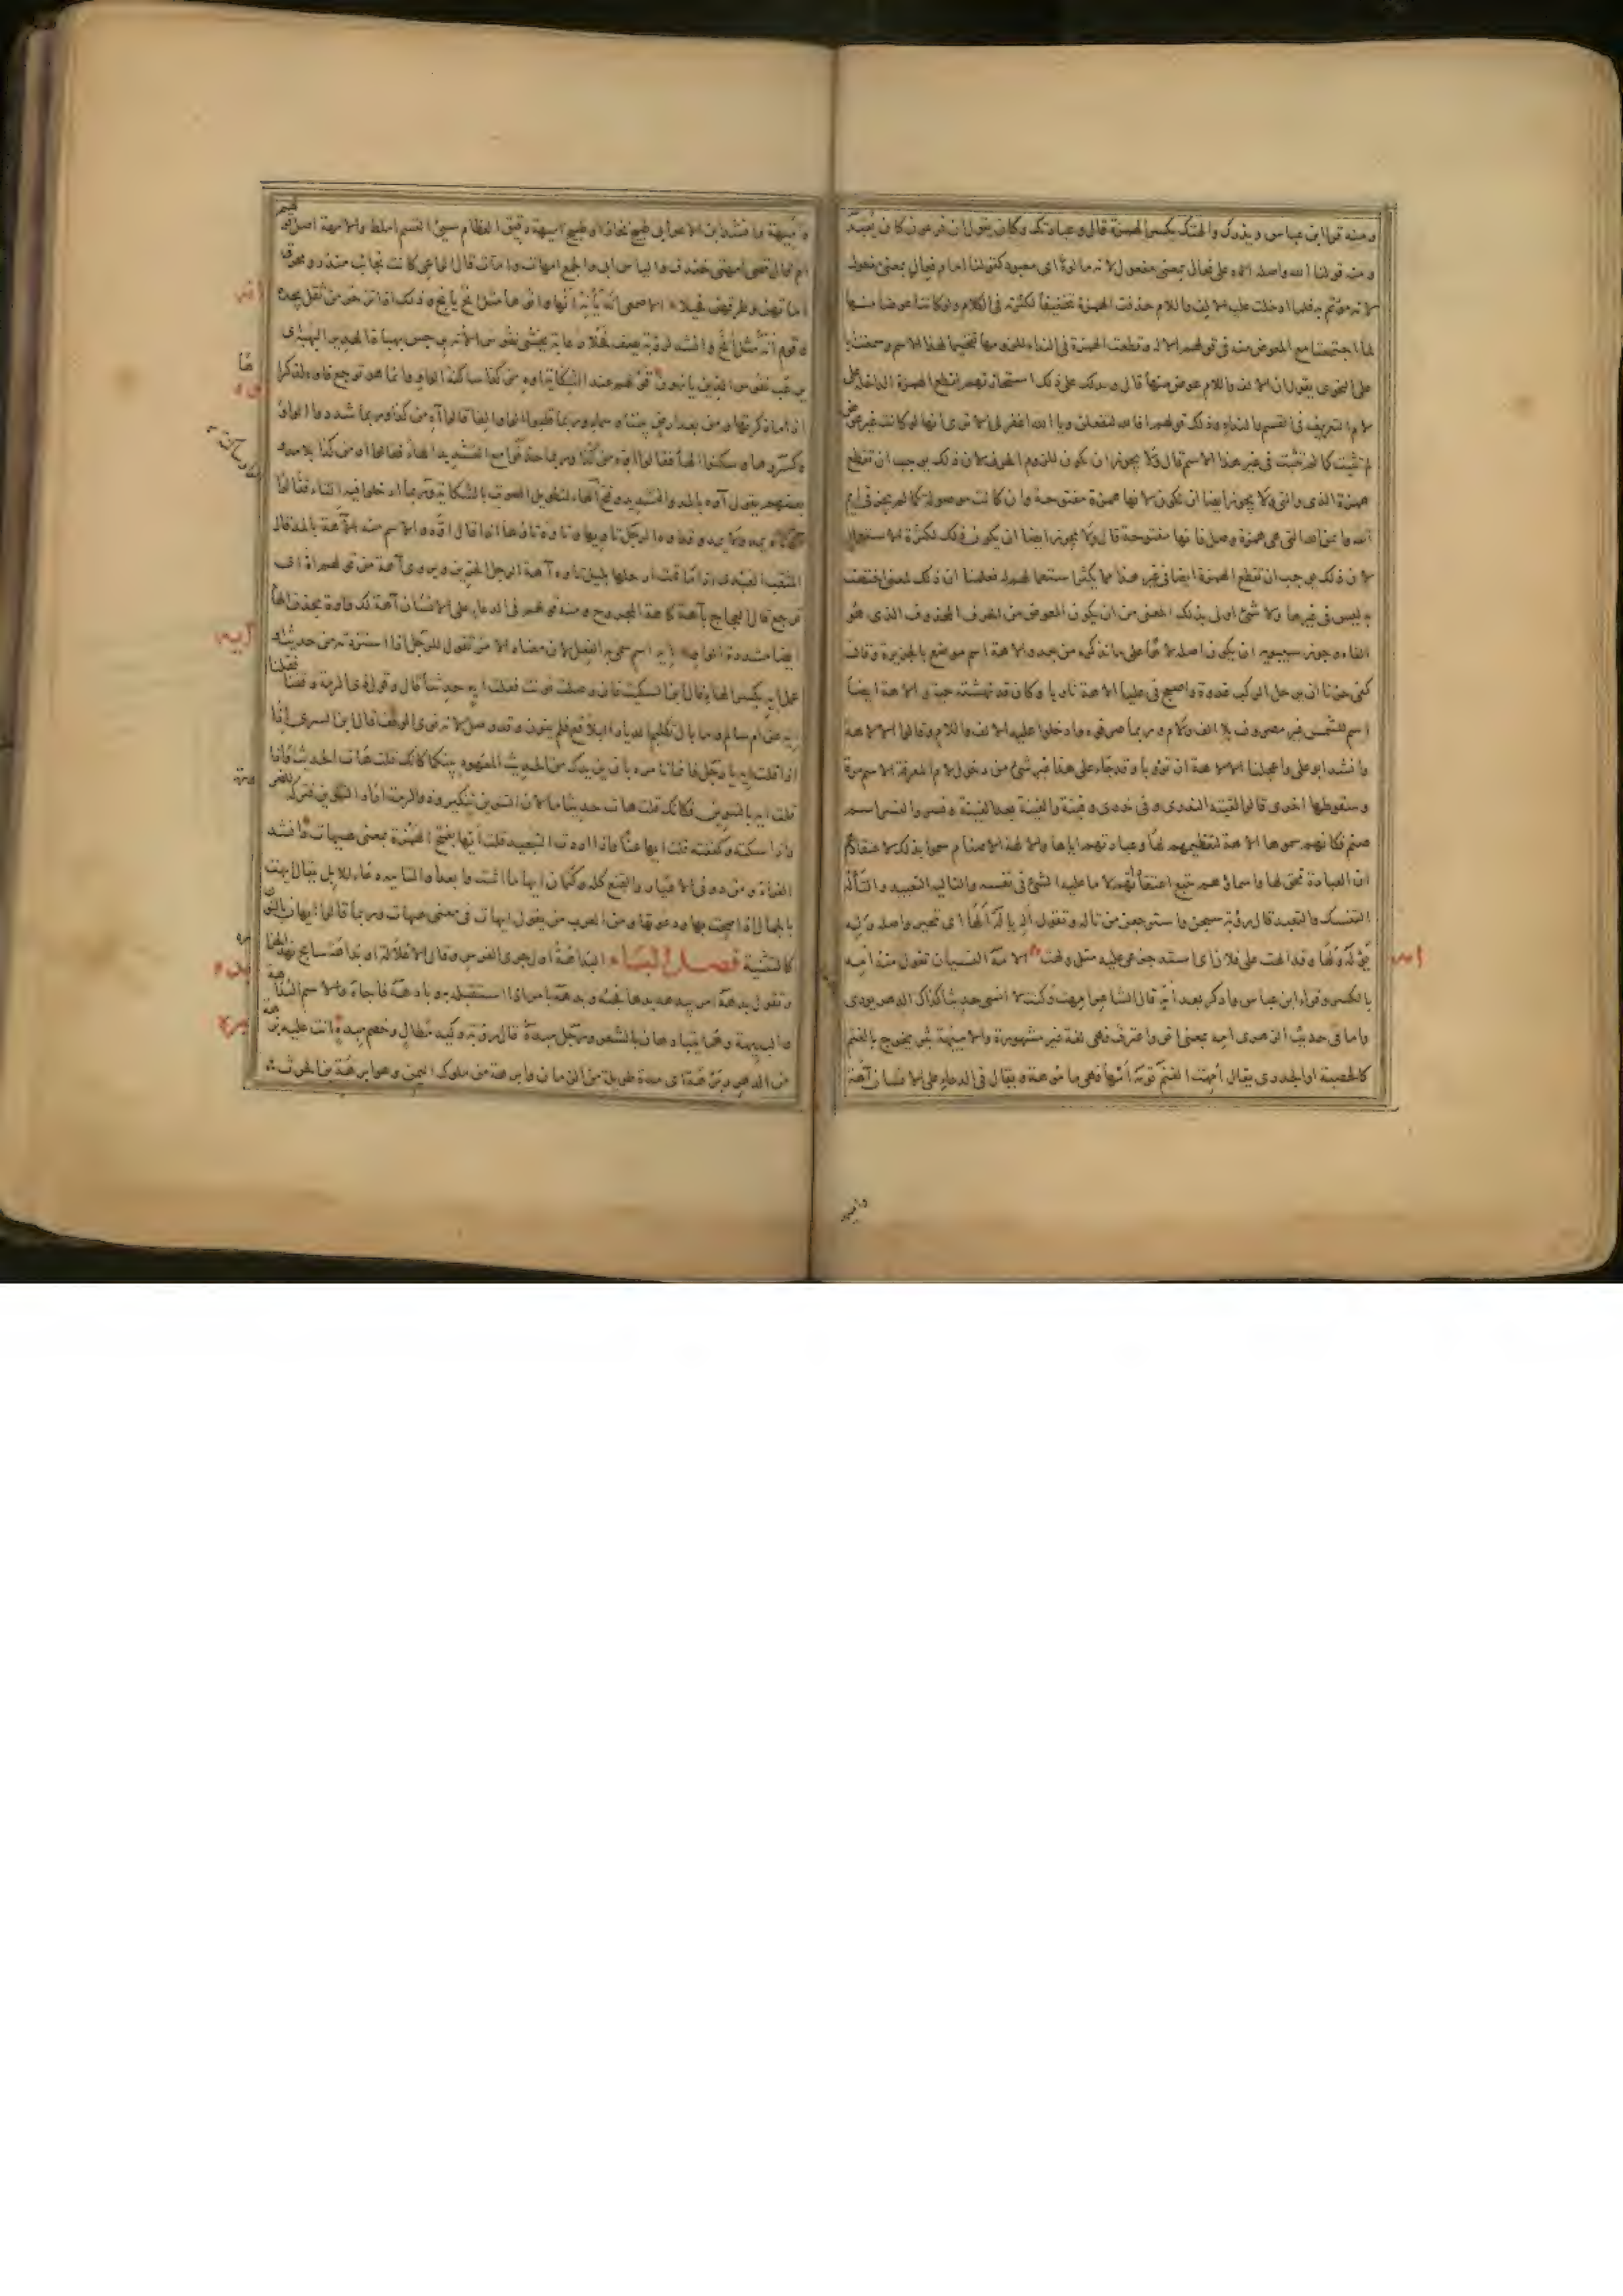 ومنه قرا ابن عباس ويذرك والهتك بكسر الهمزة قال وعبادتك وكان يقول ان فرعون كان يعبد
ومنه قولنا الله واصله الاه على فعال بمعنى مفعول لانه مالوه اى معبود كقولنا امام فعال بمعنى مفعول
لانه مؤتم به فلما ادخلت عليه الالف واللام حذفت الهمزة تخفيفا لكثرته فى الكلام ولو كانتا عوضا منها
لما اجتمعتا مع المعوض منه فى قولهم الالاه وقطعت الهمزة فى النداء للزومها تفخيما لهذا الاسم وسمعت ابا
على النحوى يقول ان الالف واللام عوض منها قال ويدلك على ذلك استجازتهم لقطع الهمزة الداخلة على
لام التعريف فى القسم والنداء وذلك قولهم افالله لتفعلن ويا الله اغفر لى الا ترى انها لو كانت غير عوض
لم تثبت كما لم تثبت فى غير هذا الاسم قال ولا يجوز ان يكون للزوم الحرف لان ذلك يوجب ان تقطع
همزة الذى والتى ولا يجوز ايضا ان يكون لانها همزة مفتوحة وان كانت موصولة كما لم يجز فى ايم
الله وايمن الله التى هى همزة وصل فانها مفتوحة قال ولا يجوز ايضا ان يكون ذلك لكثرة الاستعمال
لان ذلك يوجب ان تقطع الهمزة ايضا فى غير هذا مما يكثر استعمالهم له فعلمنا ان ذلك لمعنى اختصت
به ليس فى غيرها ولا شئ اولى بذلك المعنى من ان يكون المعوض من الحرف المحذوف الذى هو
الفاء وجوز سيبويه ان يكون اصله لاها على ما نذكره من بعد والاهة اسم موضع بالجزيرة وقال
كفى حزنا ان يرحل الركب غدوة واصبح فى عليا الاهة ثاويا وكان قد نهشته حية والاهة ايضا
اسم للشمس غير مصروف بلا الف ولام وربما صرفوه وادخلوا عليه الالف واللام وقالوا الالاهة
وانشد ابو على واعجلنا الالاهة ان تؤوبا وقد جاء على هذا غير شئ من دخول لام المعرفة الاسم مرة
وسقوطها اخرى قالوا لقيته الندرى وفى ندرى وفينة والفينة بعد الفينة ونسر والنسر اسم
صنم فكانهم سموها الاهة لتعظيمهم لها وعبادتهم اياها والالهة الاصنام سموا بذلك لاعتقادهم
ان العبادة تحق لها واسماؤهم تتبع اعتقاداتهم لا ما عليه الشئ فى نفسه والتاليه التعبيد والتأله
التنسك والتعبد قال رؤبة سبحن واسترجعن من تاله وتقول اله ياله الها اى تحير واصله وله
يوله ولها وقد الهت على فلان اى اشتد جزعى عليه مثل ولهت الامه النسيان تقول منه امه
بالكسر وقراء ابن عباس وادكر بعد امه قال الشاعر امهت وكنت لا انسى حديثا كذاك الدهر يودى
واما فى حديث الزهرى امه بمعنى اقر واعترف فهى لغة غير مشهورة والاميهة بثر يخرج بالغنم
كالحصبة او الجدرى يقال امهت الغنم تؤمه امها فهى ماموهة ويقال فى الدعاء على الانسان آهة
امه
واميهة
واميهة وانشد ابن الاعرابى طبيخ نحاز او طبيخ اميهة دقيق العظام سيئ القسم املط والامهة اصل قولهم
ام قال قصى امهتى خندف والياس ابى والجمع امهات وامات قال الراعى كانت نجائب منذر ومحرق
اماتهن وطرقهن فحيلا الاصمعى انه يأنه انها وانوها مثل انح يأنح وذلك اذا تزحر من ثقل يجده
وقوم انه مثل انح وانشد لرؤبة يصف فحلا رعابة يخشى نفوس الانه برجس بهباه الهدير البهبه
يرعب نفوس الذين يانهون قولهم عند الشكاية اوه من كذا ساكنة الواو وانما هو توجع فاوه لذكراها
اذا ما ذكرتها ومن بعد ارض بيننا وسماء وربما قلبوا الواو الفا فقالوا آه من كذا وربما شددوا الواو
وكسروها وسكنوا الهاء فقالوا اوه من كذا وربما حذفوا مع التشديد الهاء فقالوا او من كذا بلا مد و
بعضهم يقول آوه بالمد والتشديد وفتح الهاء لتطويل الصوت بالشكاية وربما ادخلوا فيه التاء فقالوا
اوتاه يمد ولا يمد وقد اوه الرجل تاويها وتاوه تاوها اذا قال اوه والاسم منه الآهة بالمد قال
المثقب العبدى اذا ما قمت ارحلها بليل تاوه آهة الرجل الحزين ويروى آهة من قولهم اه اى
توجع قال العجاج بآهة كآهة المجروح ومنه قولهم فى الدعاء على الانسان آهة لك واوة بحذف الهاء
ايضا مشددة الواو ايه اسم سمى به الفعل لان معناه الامر تقول للرجل اذا استزدته من حديث او
عمل ايه بكسر الهاء قال ابن السكيت فان وصلت نونت فقلت ايه حدثنا قال وقول ذى الرمة وقفنا فقلنا
ايه عن ام سالم وما بال تكليم الديار البلاقع فلم ينون وقد وصل لانه نوى الوقف قال ابن السرى اذا
اذا قلت ايه يا رجل فانما تامره بان يزيدك من الحديث المعهود بينكما كانك قلت هات الحديث واذا
قلت ايه بالتنوين فكانك قلت هات حديثا ما لان التنوين تنكير وذو الرمة اراد التنوين فتركه
واذا سكته وكففته قلت ايها عنا واذا اردت التبعيد قلت ايها بفتح الهمزة بمعنى هيهات وانشد
الفراء ومن دونى الاعيار والقنع كله وكتمان ايها ما اشت وابعدا والتاييه دعاء الابل يقال ايهت
بالجمال اذا صحت بها ودعوتها ومن العرب من يقول ايهات فى معنى هيهات وربما قالوا ايهان بالنون
كالتثنية فصل الباء البداهة اول جرى الفرس وقال الا علالة او بداهة سابح نهد الجزاره
وتقول بدهه امر يبدهه بدها فجئه وبدهه بامر اذا استقبله به وبادهه فاجاه والاسم البداهة
والبديهة وهما يتبادهان بالشعر ورجل مبده قال رؤبة وكيد مطال وخصم مبده اتت عليه برهة
من الدهر وبرهة اى مدة طويلة من الزمان وابرهة من ملوك اليمن وهو ابرهة بن الحرث
انه
اوه
ايه
بده
بره